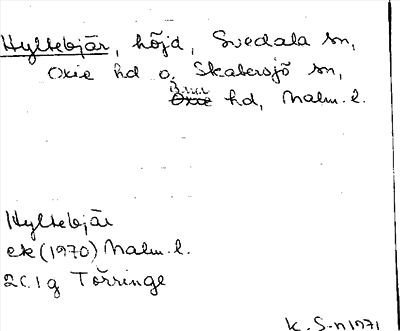 Hyltebjär, höjd, Svedala sn,
Oxie hd o. Skabersjö sn,
Bara
Oxie hd, Malm. l.
Hyltebjär
ek (1970) Malm. l.
2C 1g Törringe
K. S-n 1971